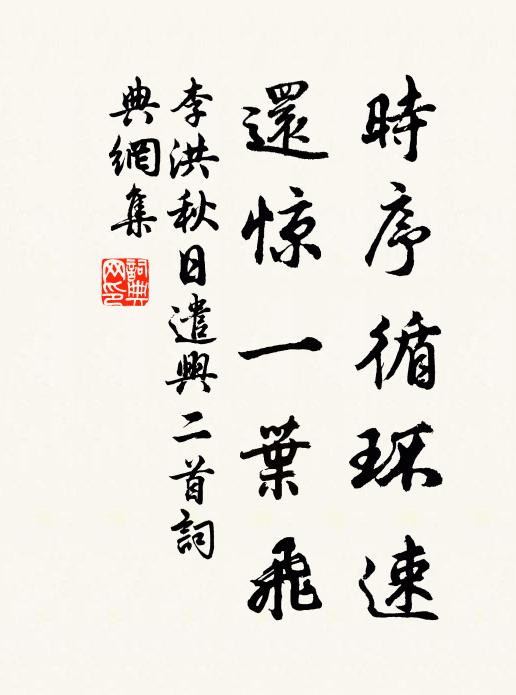 時序循环速
還惊一葉飛
李洪秋日遣興二首詞
典網集
詞典网印